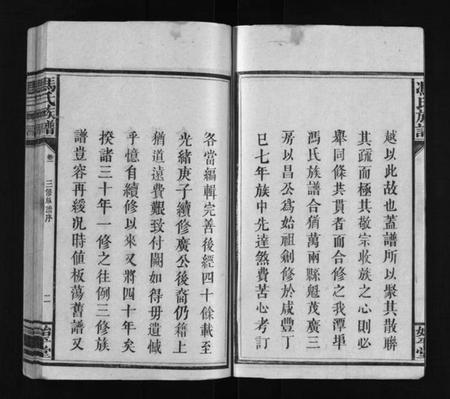 越以此故也蓋譜所以聚其散聯
其疏而極其敬宗收族之心則必
舉同條共貫者而合修之我潭埠
馮氏族譜合猶萬兩縣魁茂廣三
房以昌公為始祖創修於咸豐丁
巳七年族中先達煞費苦心考訂
馮氏族譜
始平堂
各當編輯完善後經四十餘載至
光緒庚子續修廣公後裔仍藉上
猶道遠費艱致付闕如得毋遺憾
乎憶自續修以來又將四十年矣
揆諸三十年一修之往例三修族
譜豈容再緩况時值板蕩舊譜又
馮氏族譜
卷一
三修族譜序
二
始平堂